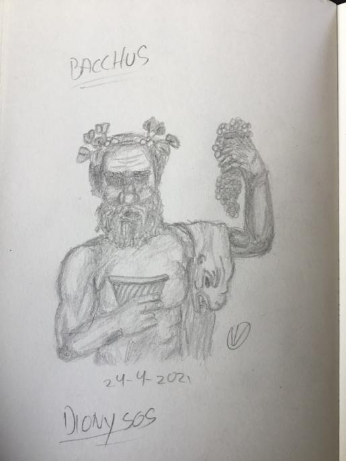 BACCHUS
24-4-2021
DIONYSOS